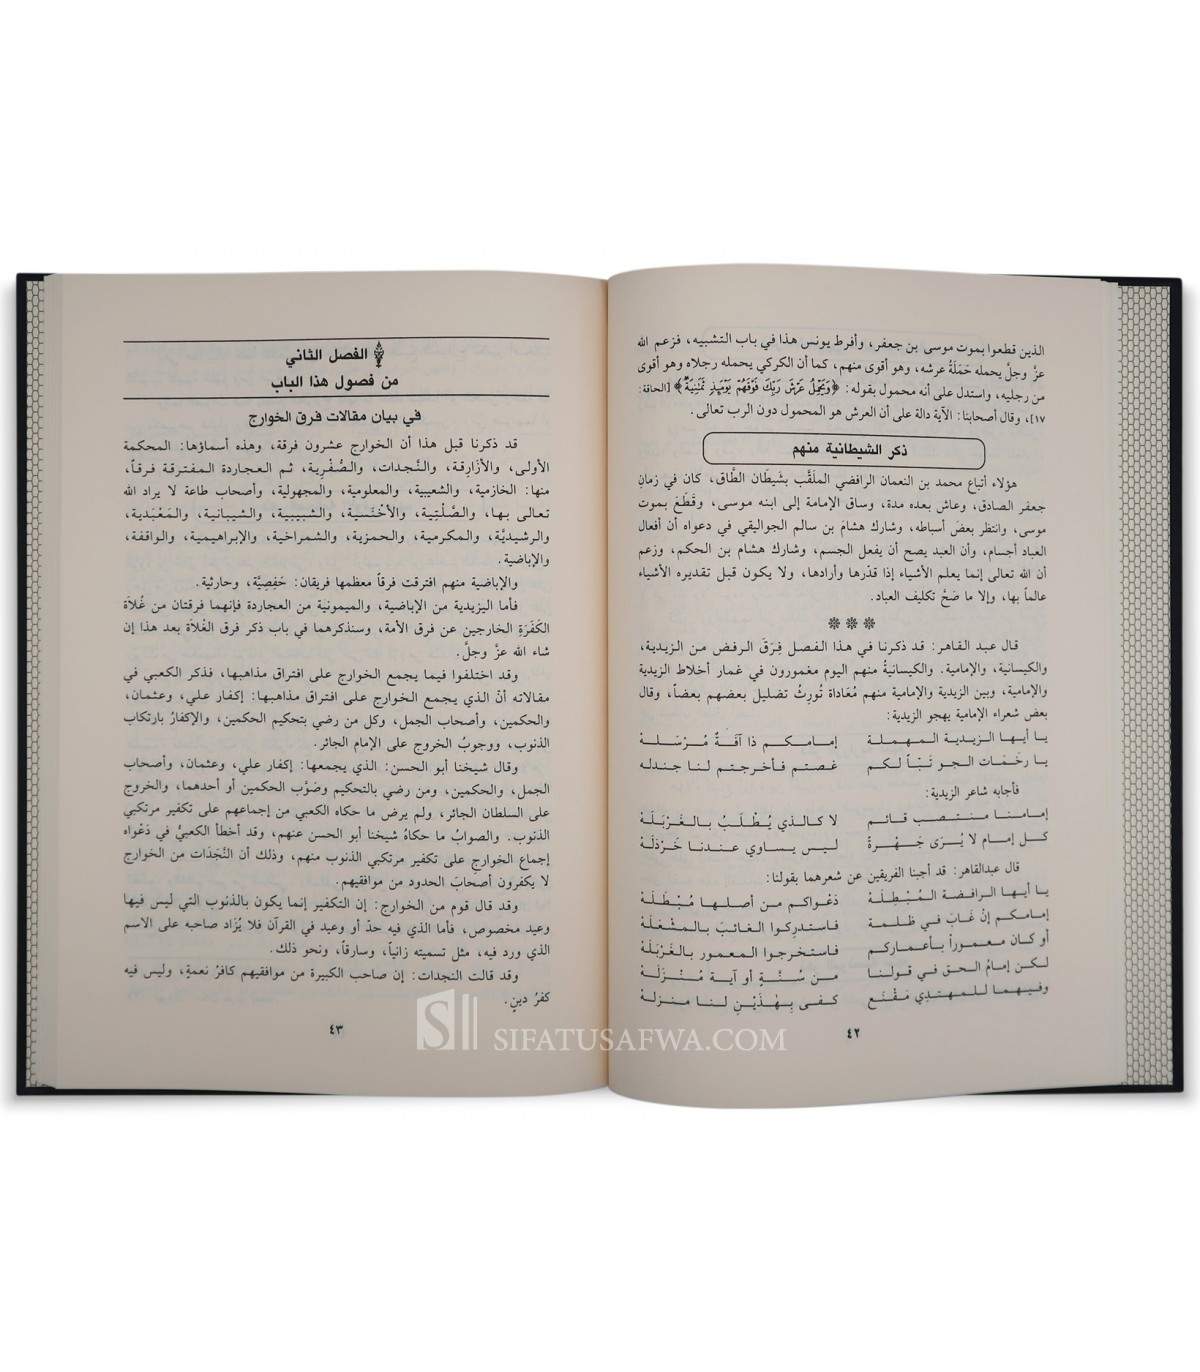 الذين قطعوا بموت موسى بن جعفر، وأفرط يونس هذا في باب التشبيه، فزعم الله
عزّ وجلّ يحمله حَمَلَةُ عرشه، وهو أقوى منهم، كما أن الكركي يحمله رجلاه وهو أقوى
من رجليه، واستدل على أنه محمول بقوله: ﴿وَيَحْمِلُ عَرْشَ رَبِّكَ فَوْقَهُمْ يَوْمَئِذٍ ثَمَٰنِيَةٌ﴾ [الحاقة:
١٧]، وقال أصحابنا: الآية دالة على أن العرش هو المحمول دون الرب تعالى.
ذكر الشيطانية منهم
هؤلاء أتباع محمد بن النعمان الرافضي الملقَّب بشَيطَان الطَّاق، كان في زمانِ
جعفر الصادق، وعاش بعده مدة، وساق الإمامة إلى ابنه موسى، وقَطَعَ بموت
موسى، وانتظر بعضَ أسباطه، وشارك هشامَ بن سالم الجواليقي في دعواه أن أفعال
العباد أجسام، وأن العبد يصح أن يفعل الجسم، وشارك هشام بن الحكم، وزعم
أن الله تعالى إنما يعلم الأشياء إذا قدّرها وأرادها، ولا يكون قبل تقديره الأشياء
عالماً بها، وإلا ما صَحَّ تكليف العباد.
❊ ❊ ❊
قال عبد القاهر: قد ذكرنا في هذا الفصل فِرَقَ الرفض من الزيدية،
والكيسانية، والإمامية. والكيسانيةُ منهم اليوم مغمورون في غمار أخلاط الزيدية
والإمامية، وبين الزيدية والإمامية منهم مُعَاداة تُورِثُ تضليل بعضهم بعضاً، وقال
بعض شعراء الإمامية يهجو الزيدية:
يا أيها الزيدية المهملة إمامكم ذا آفةٌ مُرْسَلهْ
يا رخَمَات الجو تَبّاً لكم غصتم فأخرجتم لنا جندله
فأجابه شاعر الزيدية:
إمامنا منتصب قائم لا كالذي يُطْلَبُ بالغَرْبَلَهْ
كل إمام لا يُرَى جَهْرةً ليس يساوي عندنا خَرْدَلَهْ
قال عبدالقاهر: قد أجبنا الفريقين عن شعرهما بقولنا:
يا أيها الرافضة المُبْطِلَهْ دَعْواكم من أصلها مُبْطَلَهْ
إمامكم إنْ غابَ في ظلمة فاستدرِكوا الغائبَ بالمشْعَلَهْ
أو كان معموراً بأعماركم فاستخرجوا المعمور بالغَرْبَلَهْ
لكن إمامُ الحق في قولنا من سُنَّةٍ أو آية مُنْزَلَهْ
وفيهما للمهتدِي مَقْنَع كفى بِهٰذَيْنِ لنا منزلهْ
٤٢
الفصل الثاني
من فصول هذا الباب
في بيان مقالات فرق الخوارج
قد ذكرنا قبل هذا أن الخوارج عشرون فرقة، وهذه أسماؤها: المحكمة
الأولى، والأزَارِقة، والنَّجدات، والصُّفْرِية، ثم العجاردة المفترقة فرقاً،
منها: الخازمية، والشعيبية، والمعلومية، والمجهولية، وأصحاب طاعة لا يراد الله
تعالى بها، والصَّلْتِية، والأخْنَسية، والشبيبية، والشيبانية، والمَعْبَدية،
والرشيديَّة، والمكرمية، والحمزية، والشمراخية، والإبراهيمية، والواقفة،
والإباضية.
والإباضية منهم افترقت فرقاً معظمها فريقان: حَفصِيَّة، وحارثية.
فأما اليزيدية من الإباضية، والميمونية من العجاردة فإنهما فرقتان من غُلاَة
الكُفَرَةِ الخارجين عن فرق الأمة، وسنذكرهما في باب ذكر فرق الغُلاَة بعد هذا إن
شاء الله عزّ وجلّ.
وقد اختلفوا فيما يجمع الخوارج على افتراق مذاهبها، فذكر الكعبي في
مقالاته أنَّ الذي يجمع الخوارج على افتراق مذاهبها: إكفار علي، وعثمان،
والحكمين، وأصحاب الجمل، وكل من رضي بتحكيم الحكمين، والإكفارُ بارتكاب
الذنوب، ووجوبُ الخروج على الإمام الجائر.
وقال شيخنا أبو الحسن: الذي يجمعها: إكفار علي، وعثمان، وأصحاب
الجمل، والحكمين، ومن رضي بالتحكيم وصَوَّب الحكمين أو أحدهما، والخروج
على السلطان الجائر، ولم يرض ما حكاه الكعبي من إجماعهم على تكفير مرتكبي
الذنوب. والصوابُ ما حكاهُ شيخنا أبو الحسن عنهم، وقد أخطأ الكعبيُّ في دَعْواه
إجماع الخوارجِ على تكفير مرتكبي الذنوب منهم، وذلك أن النَّجَدَات من الخوارج
لا يكفرون أصحابَ الحدود من موافقيهم.
وقد قال قوم من الخوارج: إن التكفير إنما يكون بالذنوب التي ليس فيها
وعيد مخصوص، فأما الذي فيه حدّ أو وعيد في القرآن فلا يُزَاد صاحبه على الاسم
الذي ورد فيه، مثل تسميته زانياً، وسارقاً، ونحو ذلك.
وقد قالت النجدات: إن صاحب الكبيرة من موافقيهم كافرُ نعمةٍ، وليس فيه
كفرُ دينٍ.
٤٣
SIFATUSAFWA.COM